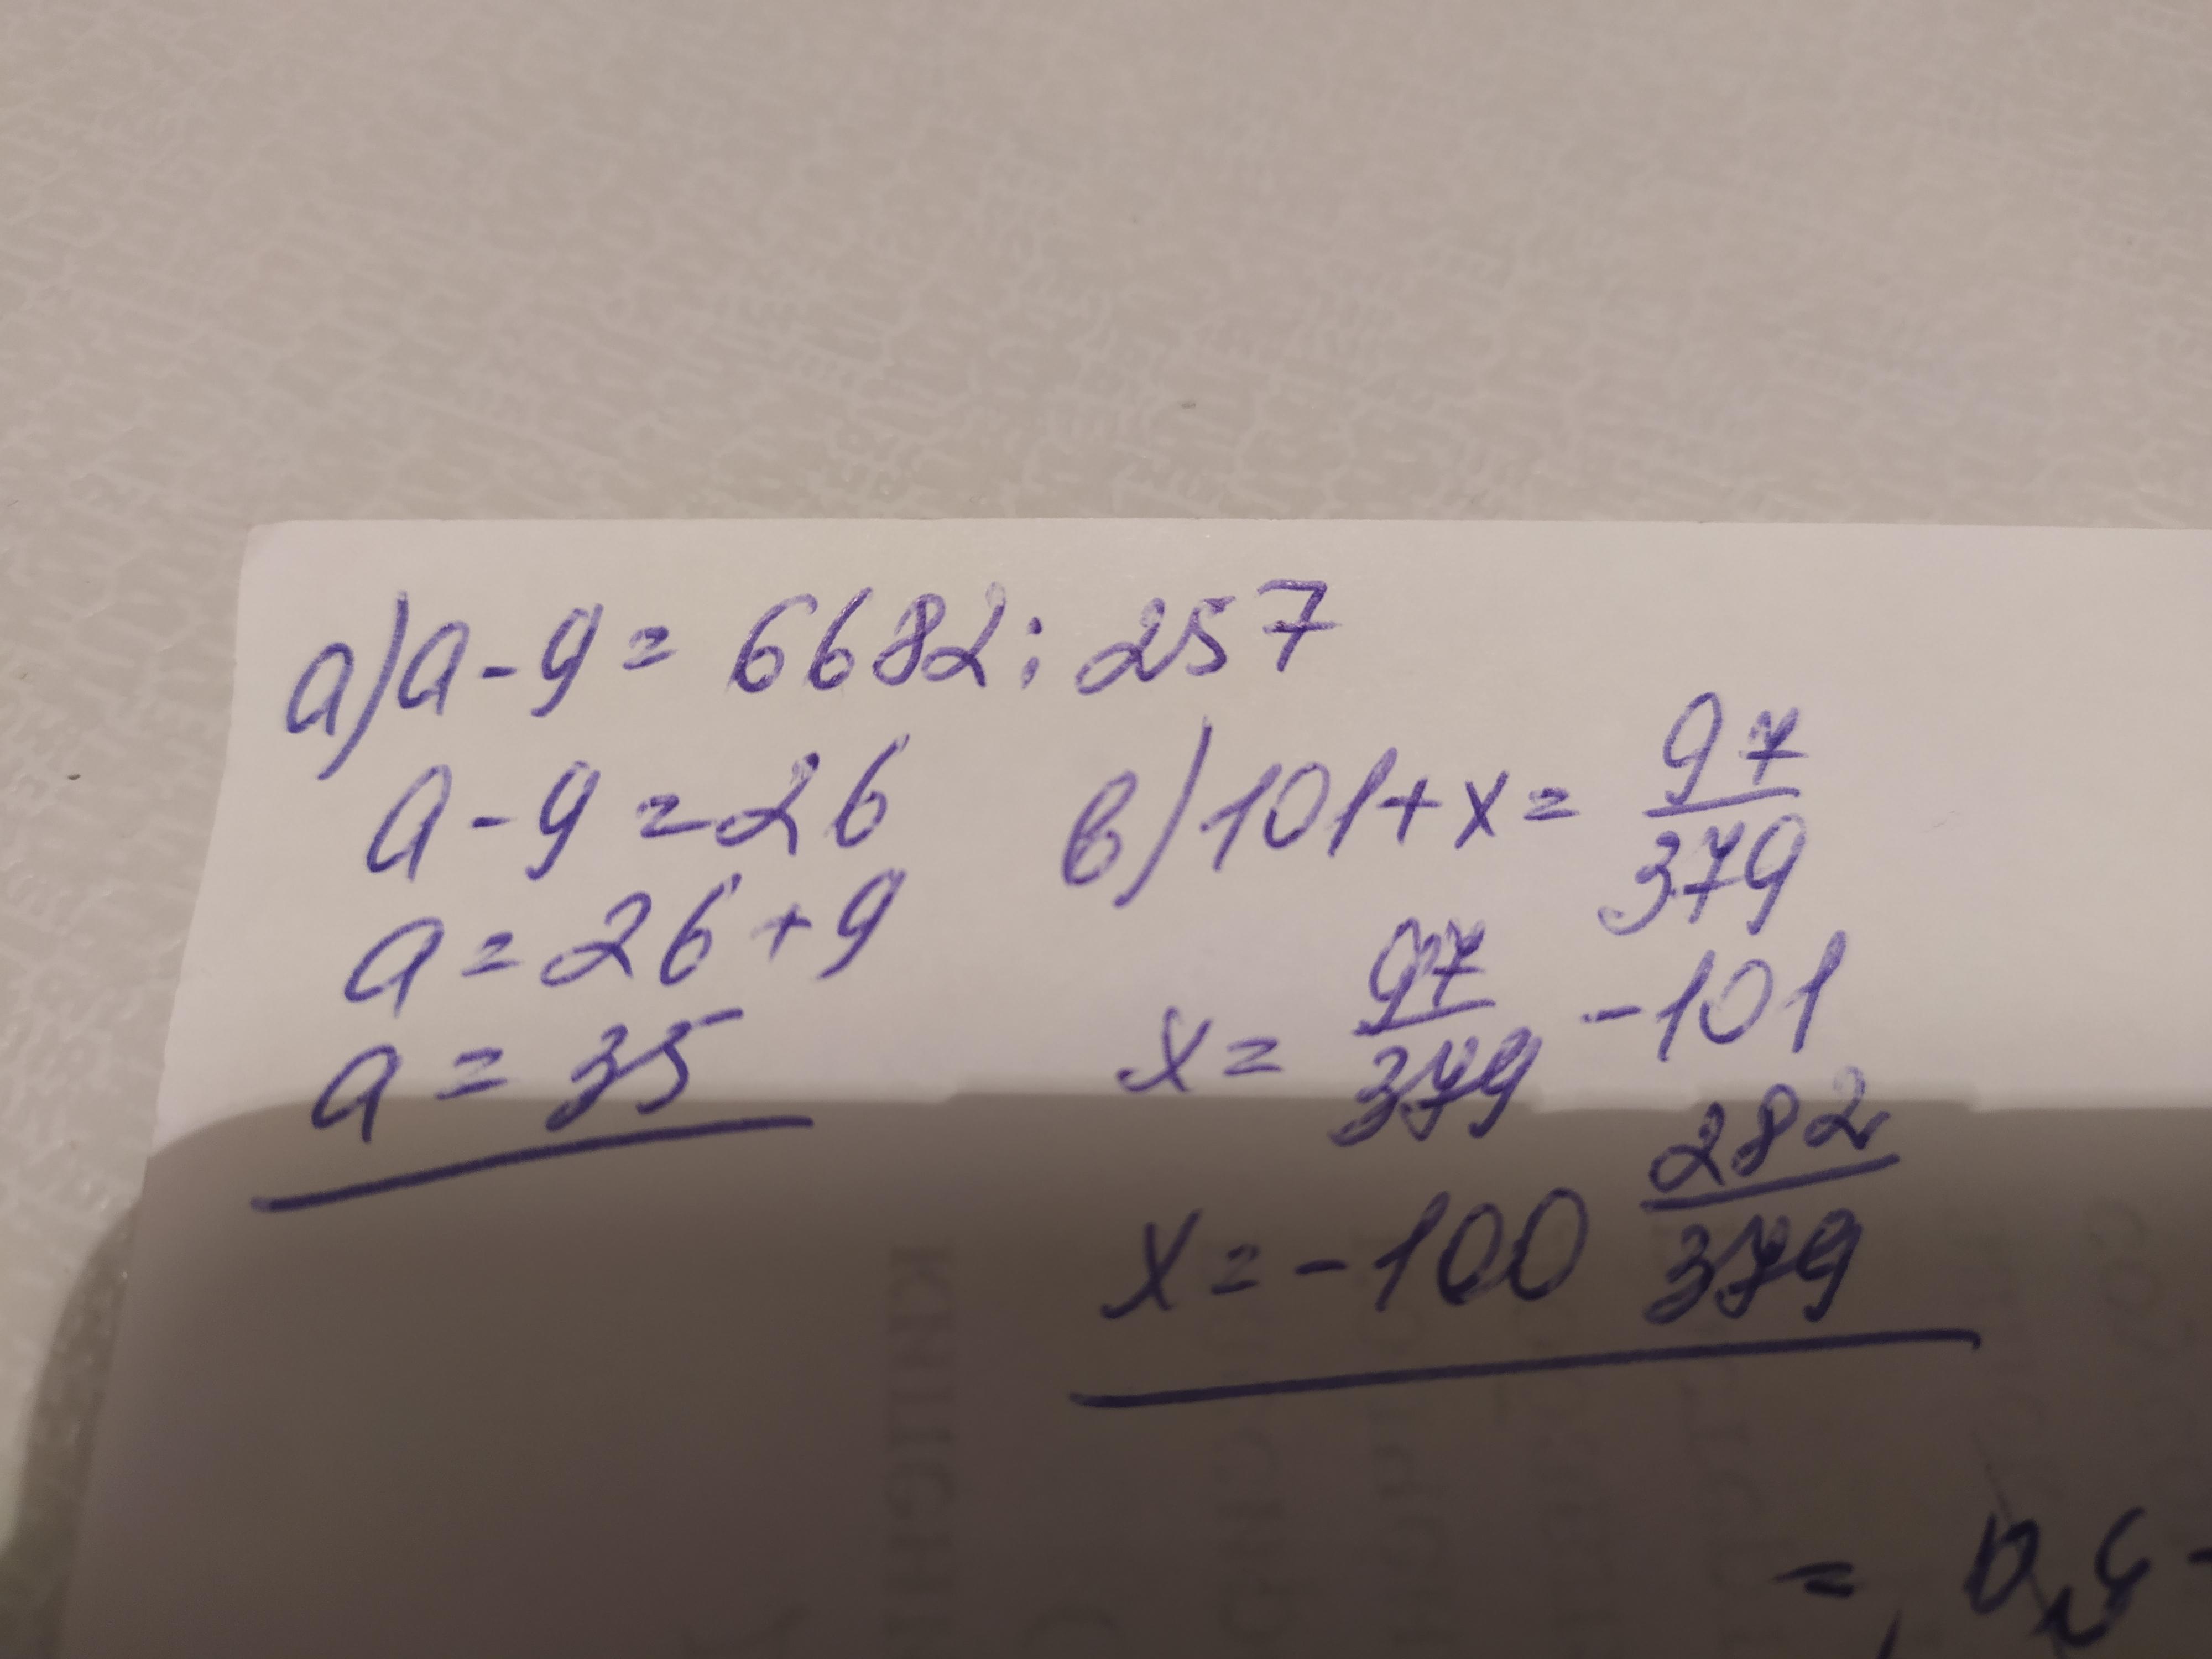 а) а - 9 = 6682 : 257
а - 9 = 26
а = 26 + 9
а = 35
в) 101 + x = 97/379
x = 97/379 - 101
x = -100 282/379